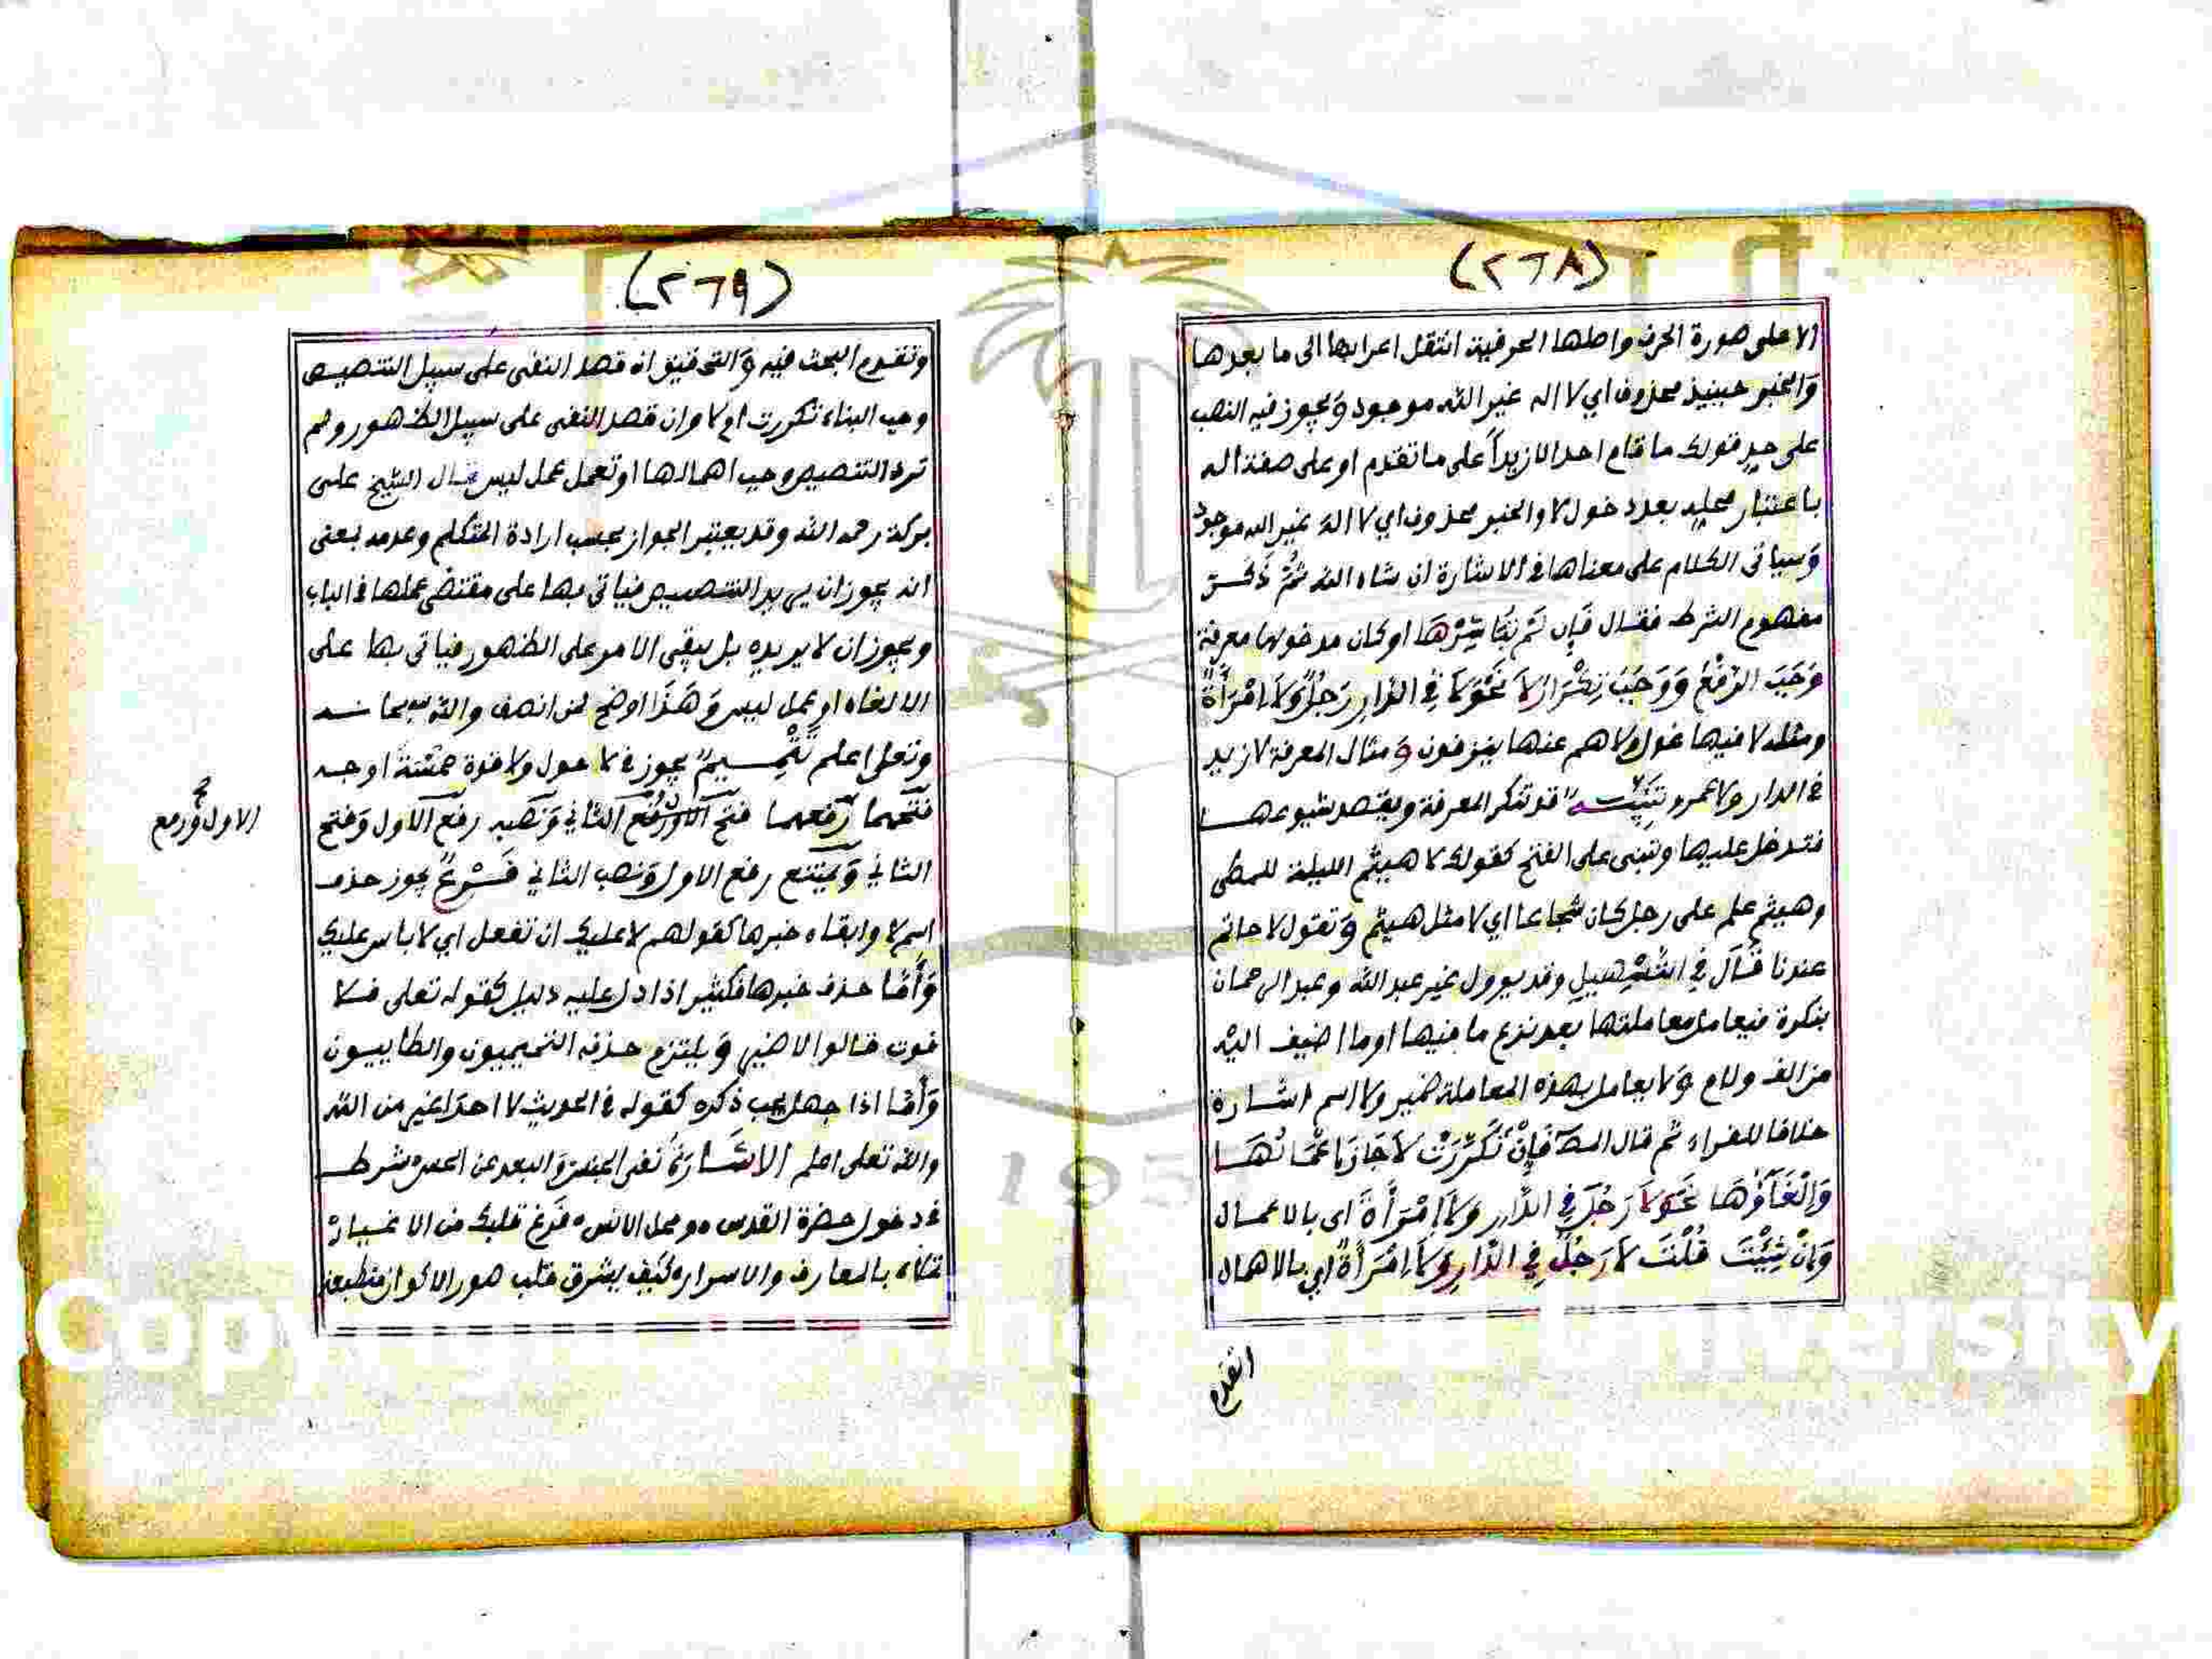 (٢٦٨)
الا على صورة الحرف واصلها الحرفية انتقل اعرابها الى ما بعدها
وَالخبر حينيذ محذوف اي لا اله غير الله موجود وَيجوز فيه النصب
على حد قولك ما قام احد الا زيداً على ما تقدم او على صفة اله
باعتبار محله بعد دخول لا والخبر محذوف اي لا اله غير الله موجود
وَسياتى الكلام على معناها فى الاشارة ان شاء الله ثُمَّ ذَكَرَ
مفهوم الشرط فقال فَإِن لَمْ تُبَاشِرْهَا او كان مدخولها معرفة
وَجَبَ الرَّفْعُ وَوَجَبَ تِكْرَارُ لَا نَحْوَ لَا فِي الدَّارِ رَجُلٌ وَلَا امْرَأَةٌ
ومثله لا فيها غول ولا هم عنها ينزفون وَمثال المعرفة لا زيد
فى الدار ولا عمرو تَنْبِيْه قد تنكر المعرفة ويقصد شيوعها
فتدخل عليها وتبنى على الفتح كقولك لا هيثم الليلة للمطى
وهيثم علم على رجل كان شجاعا اي لا مثل هيثم وَتقول لا حاتم
عندنا قَالَ فِي التَّسْهِيلِ وقد يوول غير عبد الله وعبد الرحمان
بنكرة فيعامل معاملتها بعد نزع ما فيها او ما اضيف اليْه
من الف ولام وَلا يعامل بهذه المعاملة ضمير ولا اسم اشارة
خلافا للفراء ثم قال المصَ فَإِنْ تَكَرَّرَتْ لَا جَازَ إِعْمَالُهَا
وَإِلْغَآؤُهَا نَحْوَ لَا رَجُلَ فِي الدَّارِ وَلَا امْرَأَةَ اى بالاعمال
وَإِنْ شِئْتَ قُلْتَ لَا رَجُلٌ فِي الدَّارِ وَلَا امْرَأَةٌ اي بالاهمال
(٢٦٩)
وتقدم البحث فيه وَالتحقيق ان قصد النفى على سبيل التنصيص
وجب البناء تكررت ام لا وان قصد النفى على سبيل الظهور ولم
ترد التنصيص وجب اهمالها او تعمل عمل ليس قال الشيخ على
بركة رحمه الله وقد يعتبر الجواز بحسب ارادة المتكلم وعدمه بمعنى
انه يجوز ان يريد التنصيص فياتى بها على مقتضى عملها فى الباب
ويجوز ان لا يريده بل يبقى الامر على الظهور فياتى بها على
الالغاء او عمل ليس وَهَذَا اوضح لمن انصف والله سبحانه
وتعلى اعلم تَتْمِيمٌ يجوز فى لا حول ولا قوة خمْسَةُ اوجه
فتحهما رَفعهما فتح الاول وَرَفْع الثاني وَنَصبه رفع الاول وَفتح
الاول ورفع صح
الثاني وَيَمْتنع رفع الاول وَنصب الثاني فَرْعٌ يجوز حذف
اسم لا وابقاء خبرها كقولهم لا عليك ان تفعل اي لا باس عليك
وَأَمَّا حذف خبرها فكثير اذا دل عليه دليل كقوله تعلى فلا
فوت قالوا لا ضير وَيلتزم حذفه التميميون والطاييون
وَأَمَّا اذا جهل يجب ذكره كقوله فى الحديث لا احد اغير من الله
والله تعلى اعلم الاشَارَةُ نفى الجنس وَالبعد عن الحس شرط
فى دخول حضرة القدس ومحل الانس فَرِّغ قلبك من الاغيار
تملاه بالمعارف والاسرار كيف يشرق قلب صور الاكوان منطبعة
Copy University
195